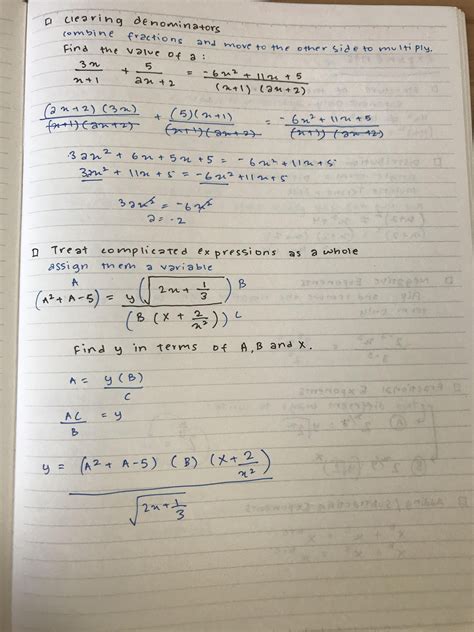 □ Clearing denominators
combine fractions and move to the other side to multiply.
Find the value of a :
3x/x+1 + 5/ax+2 = -6x² + 11x + 5/(x+1)(ax+2)
(ax+2)(3x)/(x+1)(ax+2) + (5)(x+1)/(x+1)(ax+2) = -6x² + 11x + 5/(x+1)(ax+2)
3ax² + 6x + 5x + 5 = -6x² + 11x + 5
3ax² + 11x + 5 = -6x² + 11x + 5
3ax² = -6x²
a = -2
□ Treat complicated expressions as a whole
assign them a variable
A
(A² + A - 5) = y(√2x + 1/3) B/(B (x + 2/x²)) C
Find y in terms of A, B and X.
A = y(B)/C
AC/B = y
y = (A² + A - 5) (B) (x + 2/x²)/√2x + 1/3